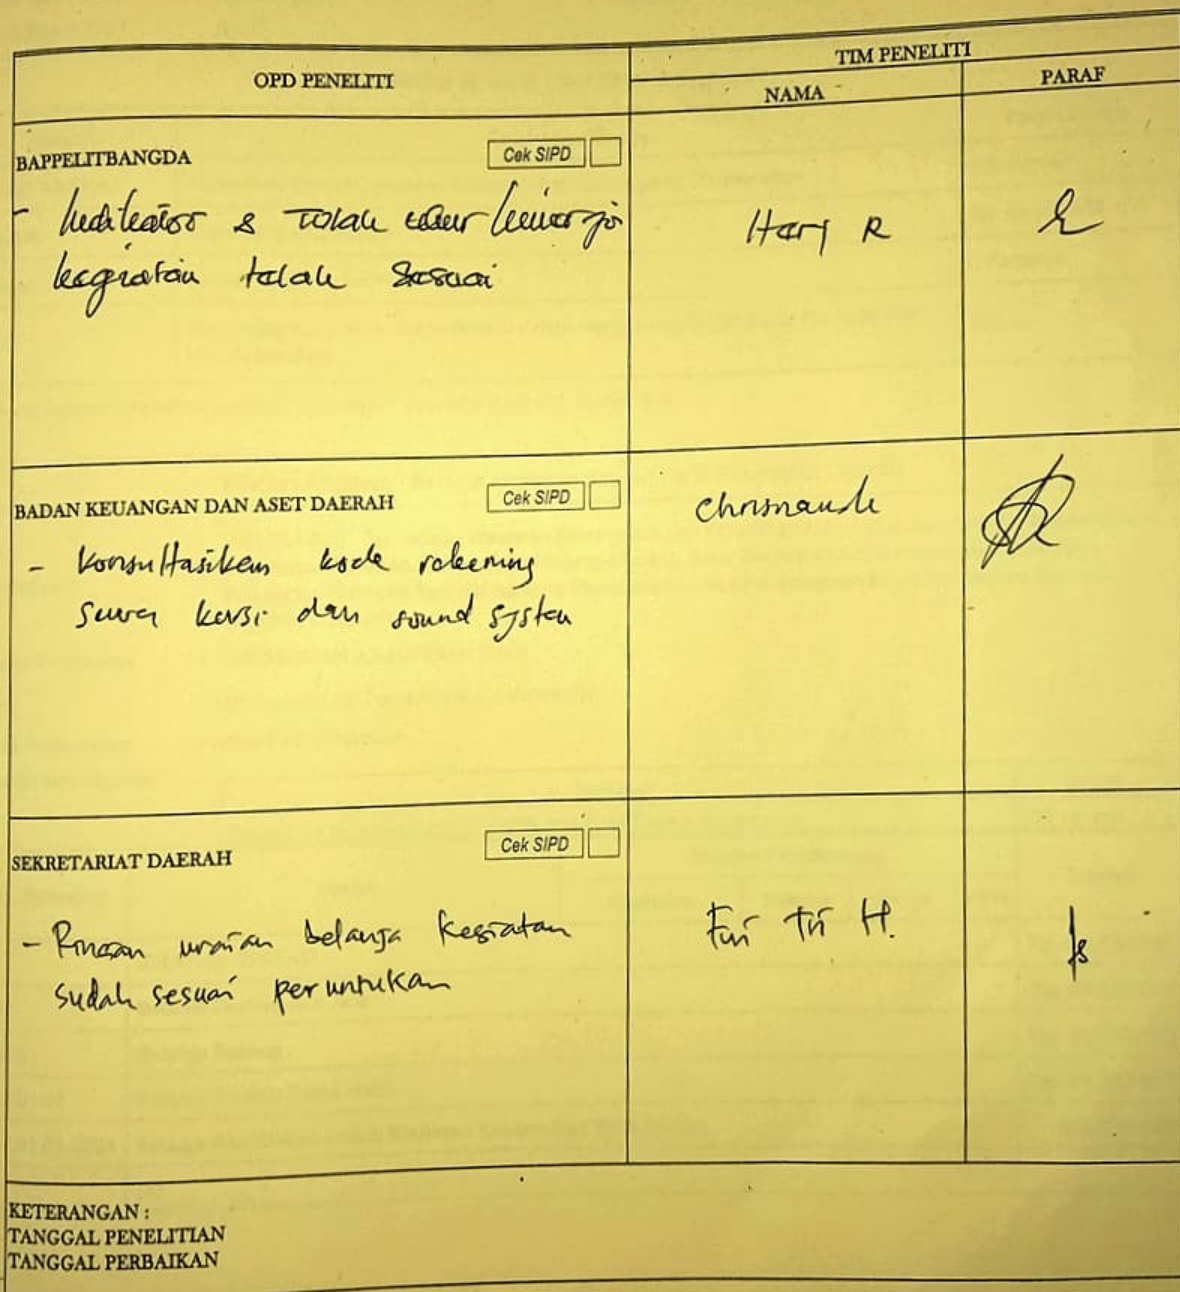 OPD PENELITI
TIM PENELITI
NAMA
PARAF
BAPPELITBANGDA
Cek SIPD
- Indikator & tolak ukur kinerja
kegiatan telah sesuai
Hary R
BADAN KEUANGAN DAN ASET DAERAH
Cek SIPD
- konsultasikan kode rekening
sewa kursi dan sound system
SEKRETARIAT DAERAH
Cek SIPD
- Rincian uraian belanja kegiatan
sudah sesuai peruntukan
Tri H.
KETERANGAN :
TANGGAL PENELITIAN
TANGGAL PERBAIKAN